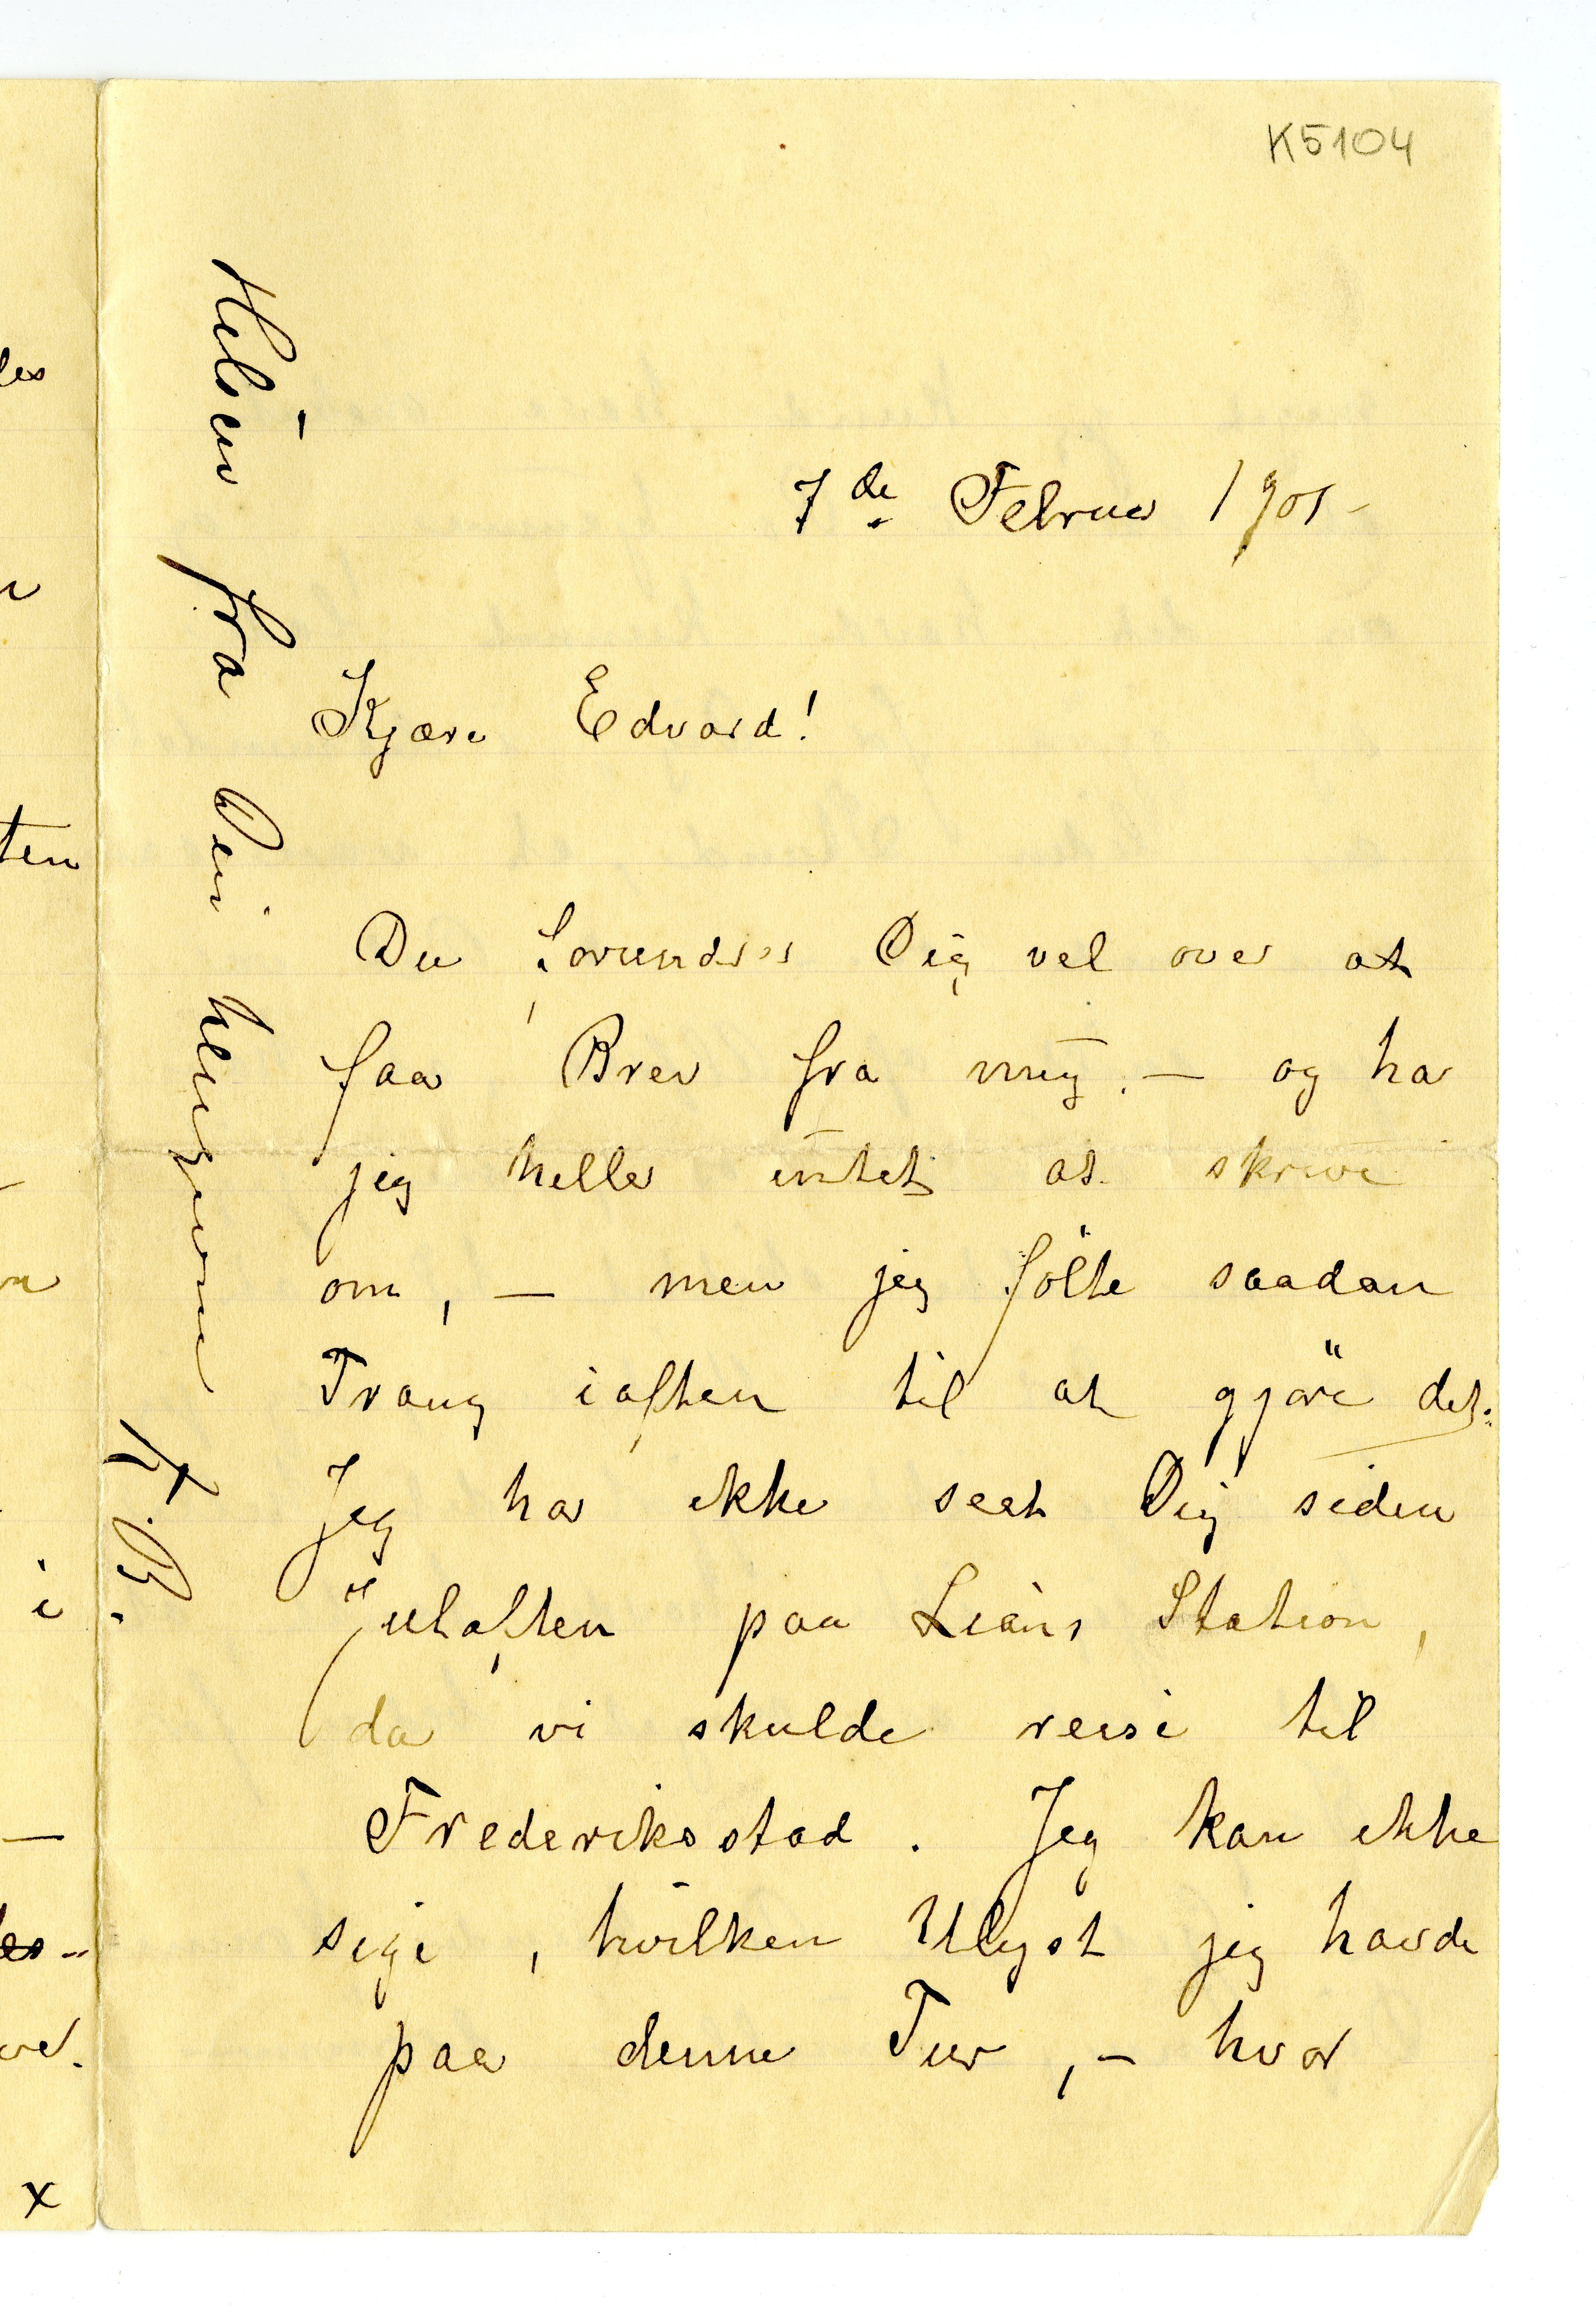 K5104
7de Februar 1901-
Kjære Edvard!
Du forundres Dig vel over at
faa Brev fra mig. — og har
jeg heller intet at skrive
om, — men jeg fölte saadan
Trang iaften til at gjöre det.
Jeg har ikke seet Dig siden
Juleaften paa Lians Station,
da vi skulde reise til
Frederiksstad. Jeg kan ikke
sige, hvilken Ulyst jeg havde
paa denne Tur, — hvor
Hilsen fra Din hengivne
K. B.
ten
i
x